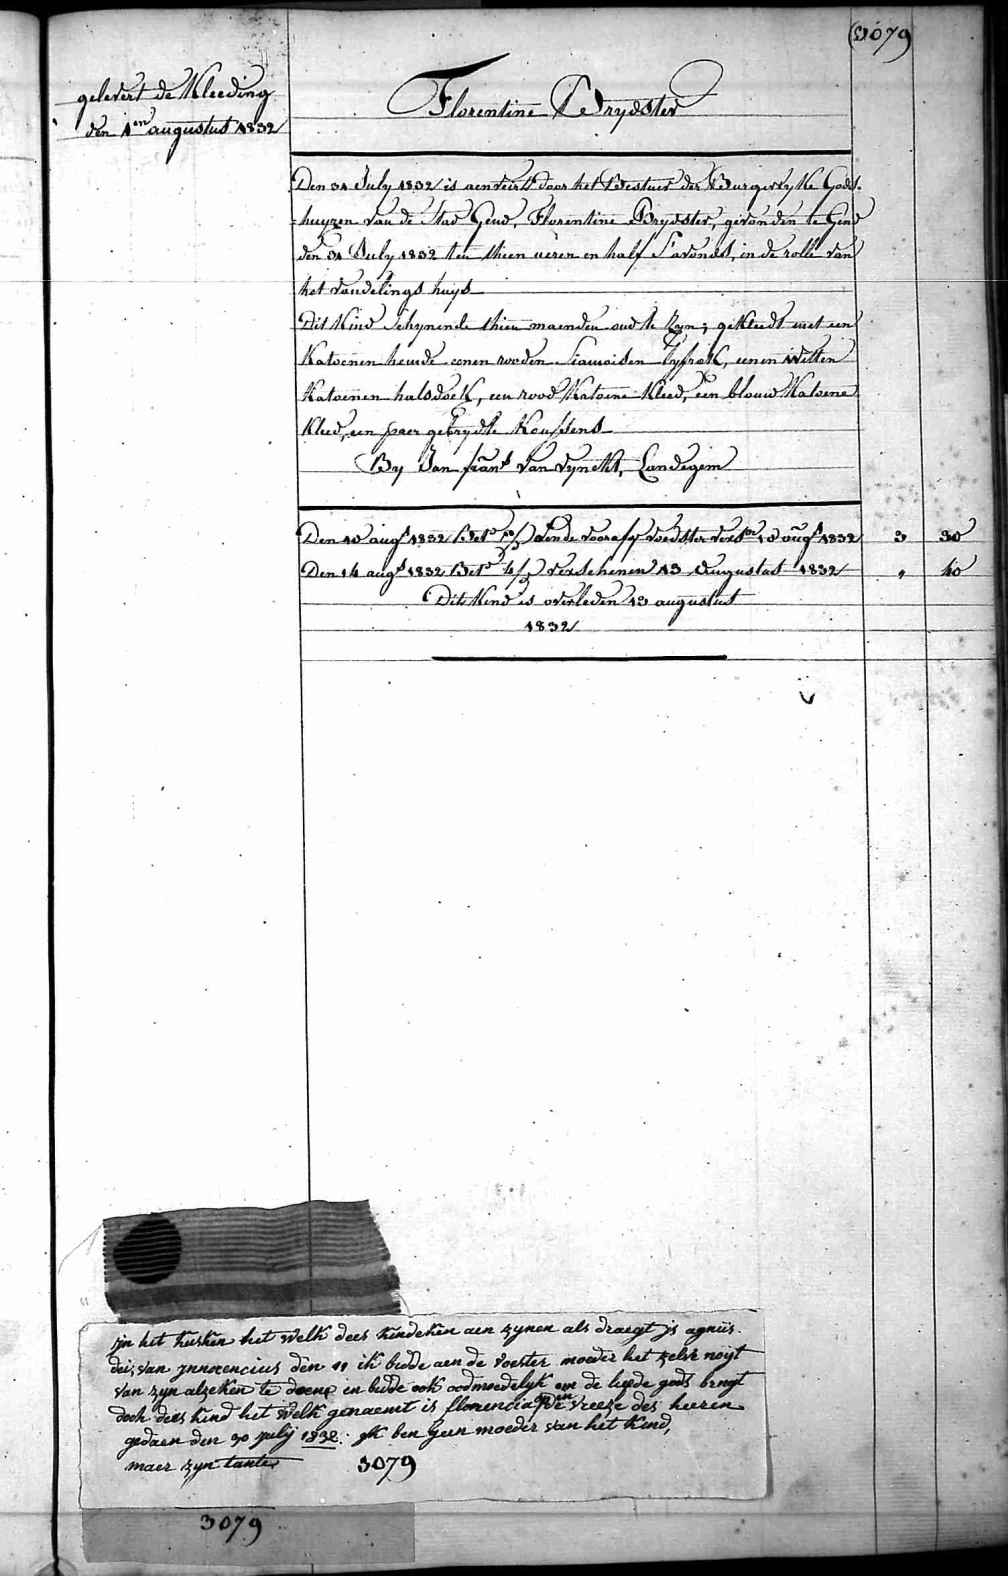 3079
gelevert de Kleeding
den 1en augustus 1832
Florentine Brydster
Den 31 July 1832 is aenveird door het Bestuur der Burgerlyke Gods-
huyzen van de Stad Gend, Florentine Brydster, gevonden te Gend
den 31 July 1832 ten thien uren en half S'avonds, in de rolle van
het vondelings huys
Dit Kind schynende thien maenden oud te zyn; gekleedt met een
Katoenen hemde eenen rooden Siamoisen Lyfrok, eenen Witten
Katoenen halsdoek, een rood Katoene Kleed, een blouw Katoene
Kleed, een paer gebrydde Koussens
By Jan frans Van Vynckt, Landegem
Den 10 augt 1832 Bet. aende voorafg voedster versn 10 augt 1832 3 30
Den 14 augt 1832 Bet. verschenen 13 Augustus 1832 " 40
Dit Kind is overleden 13 augustus
1832
ijn het kusken het welk dees kindeken aen zynen als draegt is agnus
dei, van ynnocencius den 11 ik bidde aen de voester moeder het zelve noyt
van zyn alzeken te doene en bidde ook oodmoedelyk om de liefde gods brengt
doch dees kind het welk genaemt is florencia op in de vreeze des heeren
gedaen den 30 july 1832. yk ben geen moeder van het kind,
maer zyn tante
3079
3079